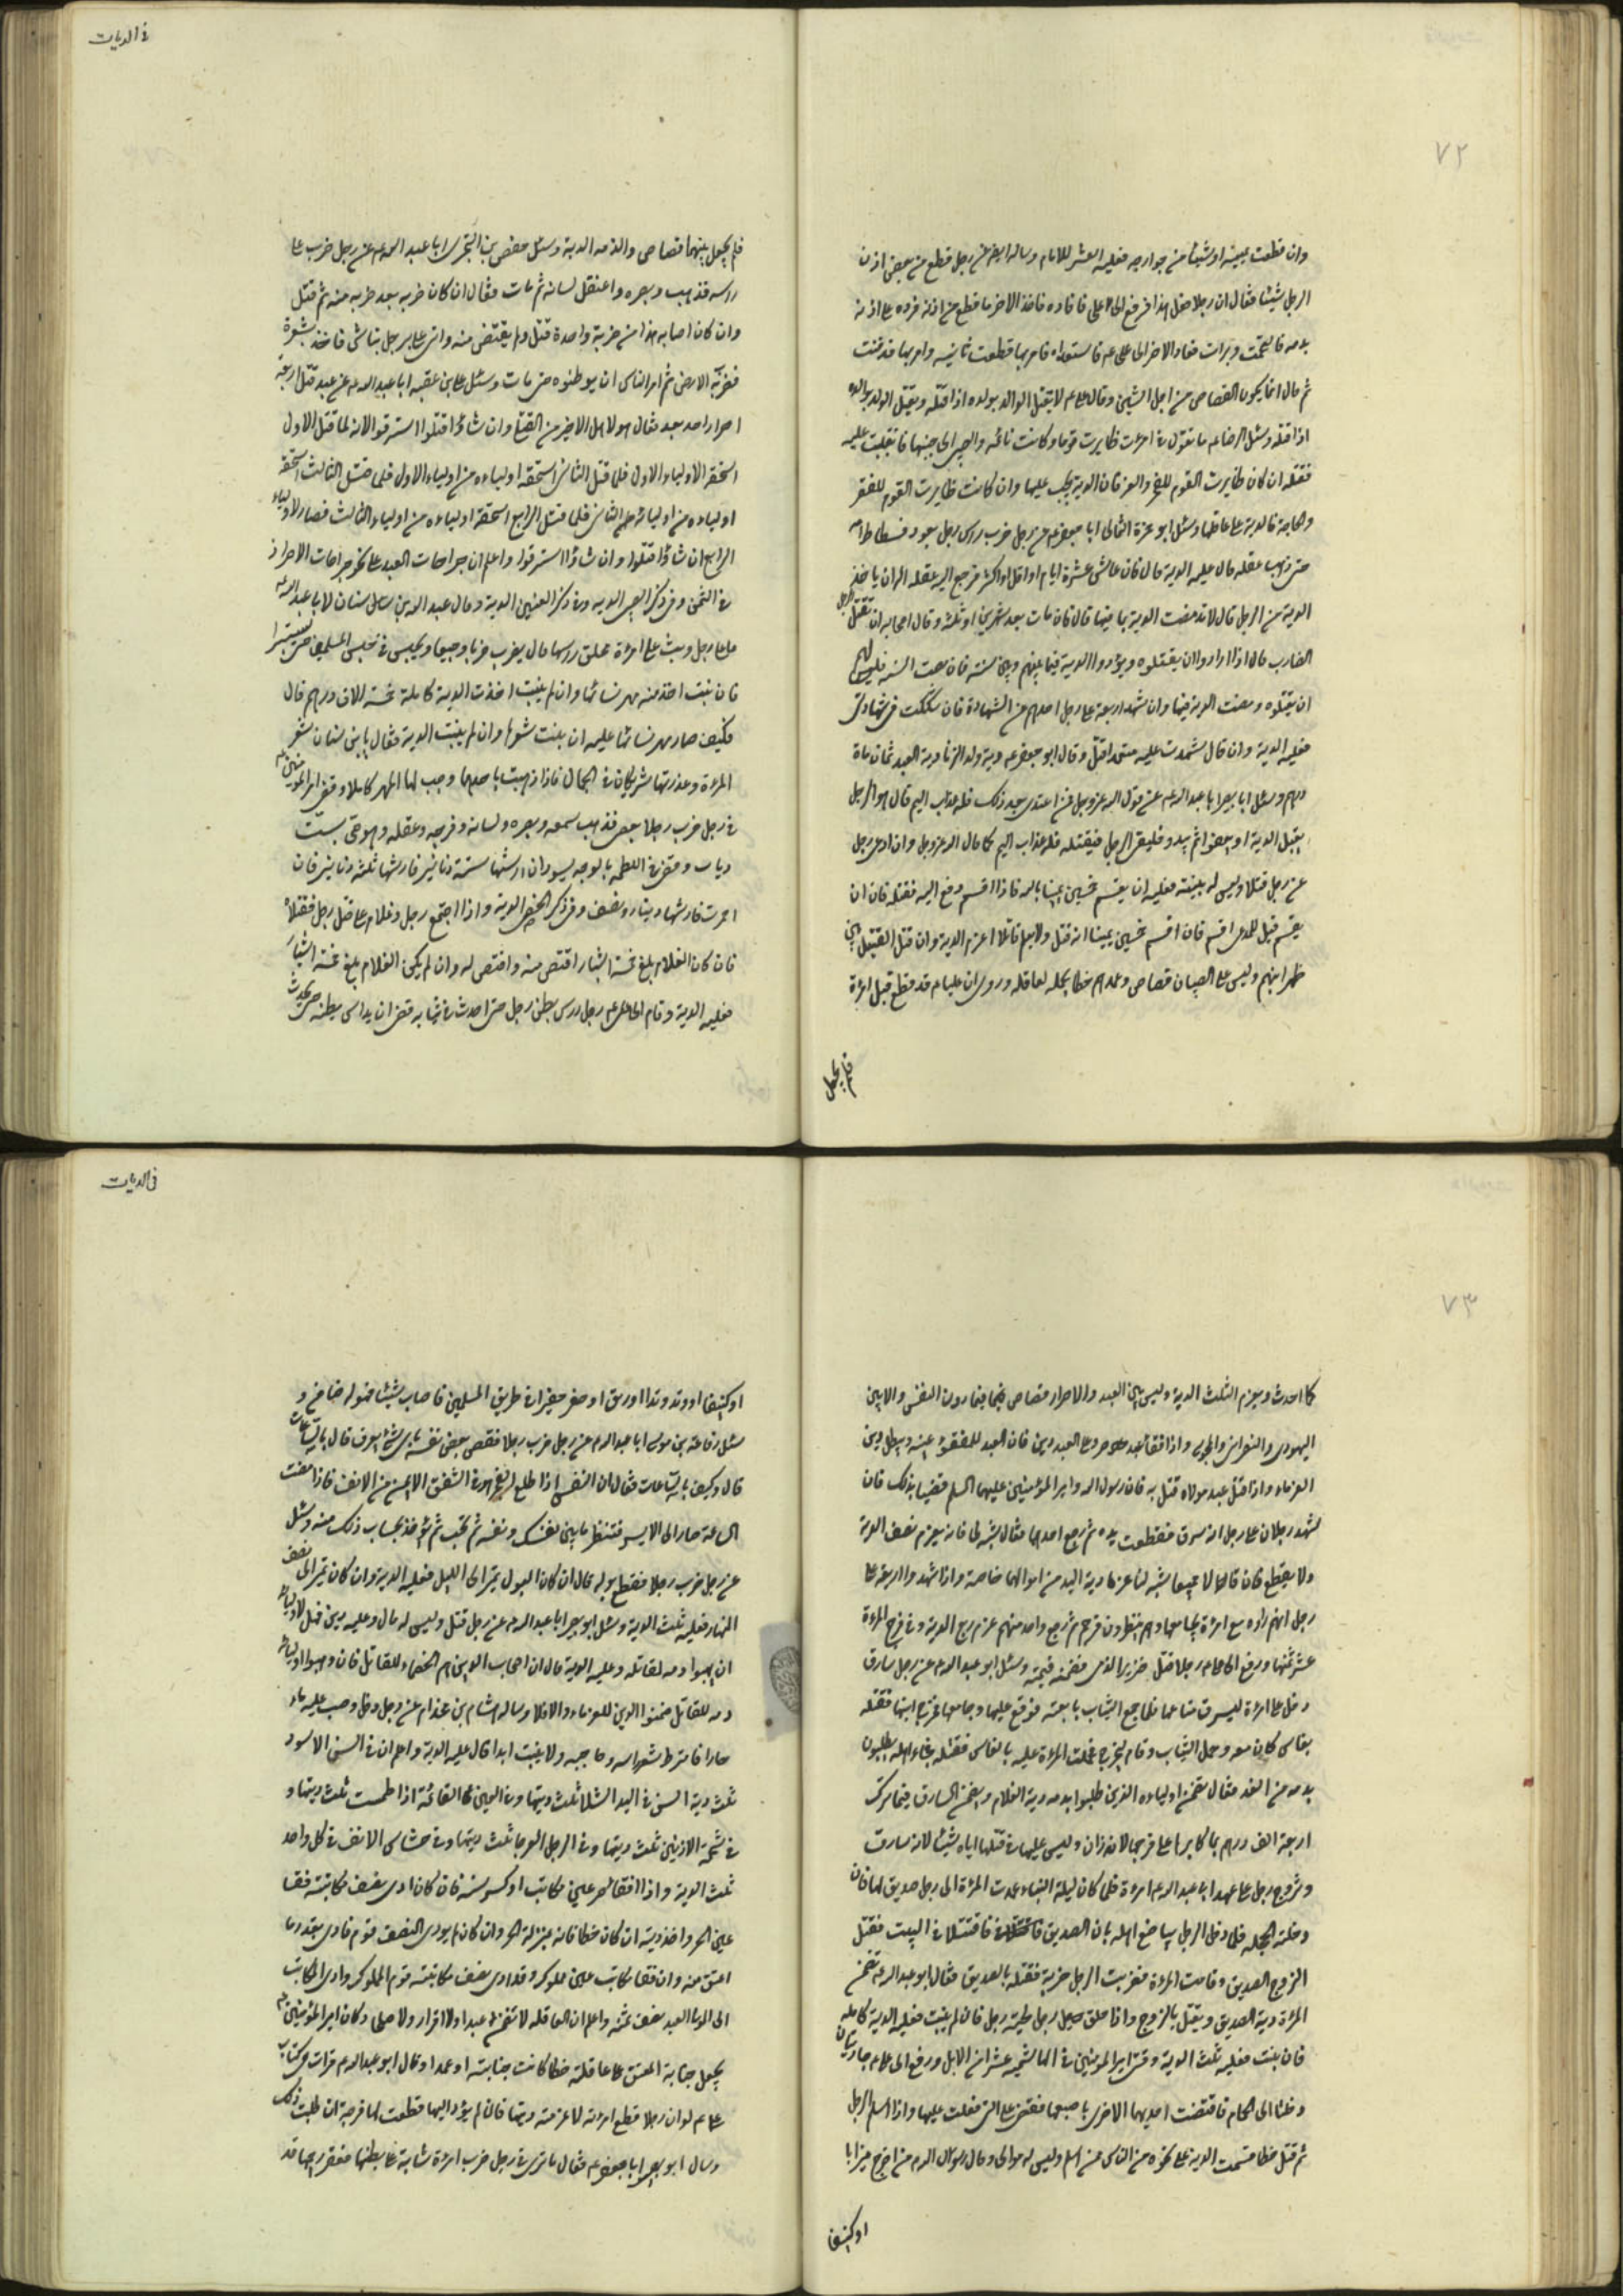 ٧٢
وان قطعت يمينه او شيئا من جوارحه فعليه العشر للامام وساله ابو عن رجل قطع من بعض اذن
الرجل شيئا فقال ان رجلا فعل هذا فرفع الى على فاقاده فاخذ الاخر ما قطع من اذنه فرده على اذنه
بدمه فالتحمت وبرات فعاد الاخر الى على عم فاستعداه فامر بها فقطعت ثانيه وامر بها فدفنت
ثم قال انما يكون القصاص من اجل الشين وقال على عم لا يقتل الوالد بولده اذا قتله ويقتل الولد بوالده
اذا قتله وسئل الرضا عم ما تقول فى امرءة ظايرت قوما وكانت نائمه والصبى الى جنبها فانقلبت عليه
فقتله ان كان ظايرت القوم للفخر والعز فان الدية يجب عليها وان كانت ظايرت القوم للفقر
والحاجة فالدية على عاقلتها وسئل ابو حمزة الثمالى ابا جعفر عم عن رجل ضرب راس رجل بعمود فسطاط فامه
حتى ذهب عقله قال عليه الدية قال فان عاش عشرة ايام او اقل او اكثر فرجع اليه عقله اله ان ياخذ
الدية من الرجل قال لا قد مضت الدية بما فيها قال فان مات بعد شهرين او ثلثة وقال اصحابه ان نقتل الرجل
الضارب قال اذا ارادوا ان يقتلوه ويؤدوا الدية فيما بينهم وبين سنة فان مضت السنه فليس لهم
ان يقتلوه ومضت الدية فيها وان شهد اربعة على رجل احدهم عن الشهادة فان شككت فى شهادتى
فعليه الدية وان قال شهدت عليه متعمدا قتل وقال ابو جعفر عم دية ولد الزنا دية العبد ثمان ماة
درهم وسئل ابا بصير ابا عبد الله عم عن قول الله عزوجل فمن اعتدى بعد ذلك فله عذاب اليم قال هو الرجل
يقبل الدية او يعفو ثم يبدو فيلقى الرجل فيقتله فله عذاب اليم كما قال الله عزوجل وان ادعى رجل
على رجل قتلا وليس له بينته فعليه ان يقسم خمسين يمينا بالله فاذا اقسم دفع اليه فقتله فان ابى ان
يقسم قيل للمدعى اقسم فان اقسم خمسين يمينا انه قتل ولا يعلم قاتلا اغرم الدية وان قتل القتيل بين
ظهرانيهم وليس على الصبيان قصاص وعمدهم خطا يحمله العاقله وروى ان عليا عم قد قطع قبل امرءة
فلم يجعل
فى الديات
فلم يجعل بينهما قصاص والزمه الدية وسئل حفص بن البخترى ابا عبد الله عم عن رجل ضرب على
راسه فذهب وبصره واعتقل لسانه ثم مات فقال ان كان ضربه بعد ضربه منه ثم قتل
وان كان اصابه هذا من ضربة واحدة قتل ولم يقتص منه واتى على برجل نباش فاخذ بشعره
فضرب به الارض ثم امر الناس ان يوطئوه حتى مات وسئل على بن عقبه ابا عبد الله عم عن عبد قتل اربعة
احرار واحد بعد فقال هو لاهل الاخير من القتلى ان شاؤا قتلوا استرقوا لانه لما قتل الاول
استحقه الاولياء الاول فلما قتل الثانى استحقه اولياءه من اولياء الاول فلما قتل الثالث استحقه
اولياءه من اولياء الثانى فلما قتل الرابع استحقه اولياءه من اولياء الثالث فصار لاولياء
الرابع ان شاؤا قتلوا وان شاؤا استرقوا واعلم ان جراحات العبد على نحو جراحات الاحرار
فى الثمن وفى ذكر الصبى الديه وفى ذكر العنين الدية وقال عبد الله بن سنان لابا عبد الله
ما على رجل وثب على امرءة فحلق راسها قال يضرب ضربا وجيعا ويحبس فى حبس المسلمين حتى يستبرا
فان نبت اخذ منه مهر نسائها وان لم ينبت اخذت الدية كاملة خمسة الاف درهم قال
فكيف صار مهر نسائها عليه ان نبت شعرها وان لم ينبت الدية فقال يابن سنان شعر
المرءة وعذرتها شريكان فى الجمال فاذا ذهبت باحدهما وجب لها المهر كاملا وقضى امير المومنين عم
فى رجل ضرب رجلا بعصى فذهب سمعه وبصره ولسانه وفرجه وعقله وهو حى بست
ديات وقضى فى اللطمه بالوجه يسود ان ارشها ستة دنانير فارشها ثلثة دنانير فان
احمرت فارشها دينار ونصف وفى ذكر الخصى الدية واذا اجتمع رجل وغلام على قتل رجل فقتلاه
فان كان الغلام بلغ خمسة اشبار اقتص منه واقتص له وان لم يكن الغلام بلغ خمسة اشبار
فعليه الدية وقام الى على عم رجل درس بطن رجل حتى احدث فى ثيابه فقضى ان يداس بطنه حتى يحدث
٧٣
كما احدث ويغرم الثلث الدية وليس بين العبد والاحرار قصاص فيما دون النفس والا بين
اليهودى والنصرانى والمجوس واذا فقا عبد عين حر وعلى العبد دين فان العبد للمفقو عينه ويبطل دين
الغرماء واذا قتل عبد مولاه قتل به فان رسول الله وامير المؤمنين عليهما السلم قضيا بذلك فان
شهد رجلان على رجل انه سرق فقطعت يده ثم رجع احدهما فقال شبه لى فانه يغرم نصف الدية
ولا يقطع فان قالا جميعا شبه لنا غرما دية اليد من اموالهما خاصة واذا شهدوا اربعة على
رجل انهم راوه مع امرءة يجامعها وهم ينظرون فرجم ثم رجع واحد منهم غرم ربع الدية وفى فرج المرءة
عشر ثمنها ورفع الى على عم رجلا قتل خنزير الذمى فضمنه قيمته وسئل ابو عبد الله عم عن رجل سارق
دخل على امرءة ليسرق متاعها فلما جمع الثياب تابعته فوقع عليها وجامعها فتحرك ابنها فقتله
بفاس كان معه وحمل الثياب وقام ليخرج حملت المرءة عليه بالفاس فقتلته فجاء اهله يطلبون
بدمه من الغد فقال تضمن اولياءه الذين طلبوا بدمه دية الغلام ويضمن السارق فيما ترك
اربعة الف درهم بما كابرها على فرجها لانه زان وليس عليها فى قتلها اياه شيئا لانه سارق
وتزوج رجل على عهد ابا عبد الله عم امرءة فلما كان ليلة البناء عمدت المرءة الى رجل صديق لها فان
دخلته الحجله فلما دخل الرجل يباضع اهله بان الصديق فاقتتلا فى البيت فقتل
الزوج الصديق وقامت المرءة فضربت الرجل ضربة فقتلته بالصديق فقال ابو عبد الله عم تضمن
المرءة دية الصديق ويقتل بالزوج واذا حلق رجل لحية رجل فان لم ينبت فعليه الدية كامله
فان نبت فعليه ثلث الدية وقضى امير المومنين فى الهاشمه عشرا من الابل ورفع الى على عم جاريتان
دخلتا الى الحمام فاقتضت احديهما الاخرى باصبعها فقضى على التى فعلت عليها واذا اسلم الرجل
ثم قتل خطا قسمت الدية على نحوه من الناس ممن اسلم وليس له موالى وقال رسول الله ص من اخرج ميزابا
او كنيفا
فى الديات
او كنيفا او وتد وتدا او ربق او حفر حفيرا فى طريق المسلمين فاصاب شيئا فهو له ضامن و
سئل رفاعة بن موسى ابا عبد الله عم عن رجل ضرب رجلا فنقص بعض نفسه باى شئ يعرف قال بالساعات
قال وكيف بالساعات فقال ان النفس اذا طلع الفجر هو فى الشق الايمن من الانف فاذا مضت
الساعة صار الى الايسر فتنظر ما بين نفسك ونفسه ثم تحسب ثم تؤخذ بحساب ذلك منه وسئل
عن رجل ضرب رجلا فقطع بوله قال ان كان البول يمر الى الليل فعليه الدية وان كان يمر الى نصف
النهار فعليه ثلث الدية وسئل ابو بصير ابا عبد الله عم عن رجل قتل وليس له مال وعليه دين فهل لاولياء
ان يهبوا دمه لقاتله وعليه الدية قال ان اصحاب الدين هم الخصماء للقاتل فان وهبوا اولياء
دمه للقاتل ضمنوا الدين للغرماء والا فلا وساله هشام بن عن رجل دخل وصب عليه ماء
حارا فامترط شعر راسه وحاجبه ولا ينبت ابدا قال عليه الدية واعلم ان فى السن الاسود
ثلث دية السن فى اليد الشلا ثلث ديتها وفى العين القائمة اذا طمست ثلث ديتها و
فى شحمة الاذنين ثلث ديتها وفى الرجل العرجا ثلث ديتها وفى خشاش الانف فى كل واحد
ثلث الدية واذا فقا حر عين مكاتب او كسر سنه فان كان ادى نصف مكاتبته فقا
عين الحر واخذ ديته ان كان خطا فانه بمنزلة الحر وان كان لم يودى النصف قوم فادى بقدر ما
اعتق منه وان فقا مكاتب عين مملوك وقد ادى نصف مكاتبته قوم المملوك وادى المكاتب
الى المولا العبد نصف ثمنه واعلم ان العاقله لا تضمن عبدا ولا اقرار ولا صلحا وكان امير المؤمنين عم
يجعل جناية المعتق على عاقلته خطا كانت جنايته او عمدا وقال ابو عبد الله عم قرات فى كتاب
على عم لو ان رجلا قطع امرءته لاغرمته ديتها فان لم يؤد اليها قطعت لها فرجه ان طلبت ذلك
وسال ابو بصير ابا جعفر عم فقال ما ترى فى رجل ضرب امرءة شابة على بطنها فعقر رحمها قد